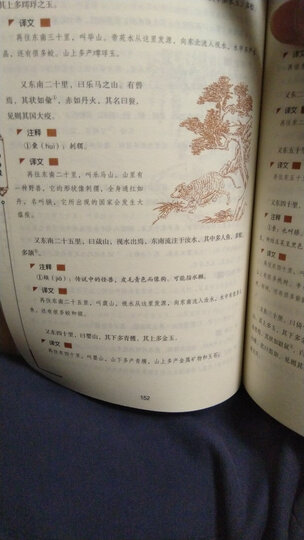 其上多㻬琈之玉。
译文
再往东南三十里，叫毕山。帝苑水从这里发源，向东北流入视水，水中多产水
玉，还有很多蛟。山上多产㻬琈玉。
又东南二十里，曰乐马之山。有兽
焉，其状如彙，赤如丹火，其名曰
见则其国大疫。
注释
①彙（huì）：刺猬。
译文
再往东南二十里，叫乐马山。山里有
一种野兽，它的形状像刺猬，全身通红如
丹，名叫 它所出现的国家会发生大
瘟疫。
又东南二十五里，曰葴山，视水出焉，东南流注于汝水，其中多人鱼，多蛟，
多颉
注释
①颉（jié）：传说中的怪兽，皮毛青色而像狗，可能指水獭。
译文
再往东南二十五里，叫葴山，视水从这里发源，向东南流入汝水，水中有很多
鱼，还有很多蛟和颉。
又东四十里，曰婴山，其下多青雘，其上多金玉。
译文
再往东四十里，叫婴山，山下多产青雘，山上多产金属矿物和玉石。
152